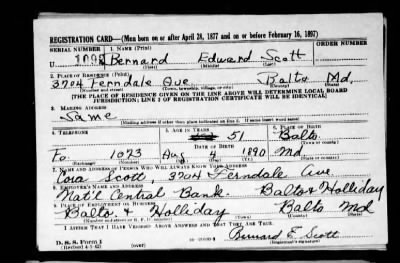 REGISTRATION CARD—(Men born on or after April 28, 1877 and on or before February 16, 1897)
SERIAL NUMBER 1. NAME (Print) ORDER NUMBER
U Bernard Edward Scott
(First) (Middle) (Last)
2. PLACE OF RESIDENCE (Print)
3704 Ferndale Ave Balto Md.
(Number and street) (Town, township, village, or city) (County) (State)
[THE PLACE OF RESIDENCE GIVEN ON THE LINE ABOVE WILL DETERMINE LOCAL BOARD
JURISDICTION; LINE 2 OF REGISTRATION CERTIFICATE WILL BE IDENTICAL]
3. MAILING ADDRESS
Same
[Mailing address if other than place indicated on line 2. If same insert word same]
4. TELEPHONE 5. AGE IN YEARS 6. PLACE OF BIRTH
51 Balto.
DATE OF BIRTH (Town or county)
Fo. 1073 Aug 4 1890 Md
(Exchange) (Number) (Mo.) (Day) (Yr.) (State or country)
7. NAME AND ADDRESS OF PERSON WHO WILL ALWAYS KNOW YOUR ADDRESS
Cora Scott 3704 Ferndale Ave
8. EMPLOYER'S NAME AND ADDRESS
Nat'l Central Bank. Balto & Holliday
9. PLACE OF EMPLOYMENT OR BUSINESS
Balto. & Holliday Balto Md
(Number and street or R. F. D. number) (Town) (County) (State)
I AFFIRM THAT I HAVE VERIFIED ABOVE ANSWERS AND THAT THEY ARE TRUE.
D. S. S. Form 1 Bernard E. Scott
(Revised 4-1-42) (over) (Registrant's signature)